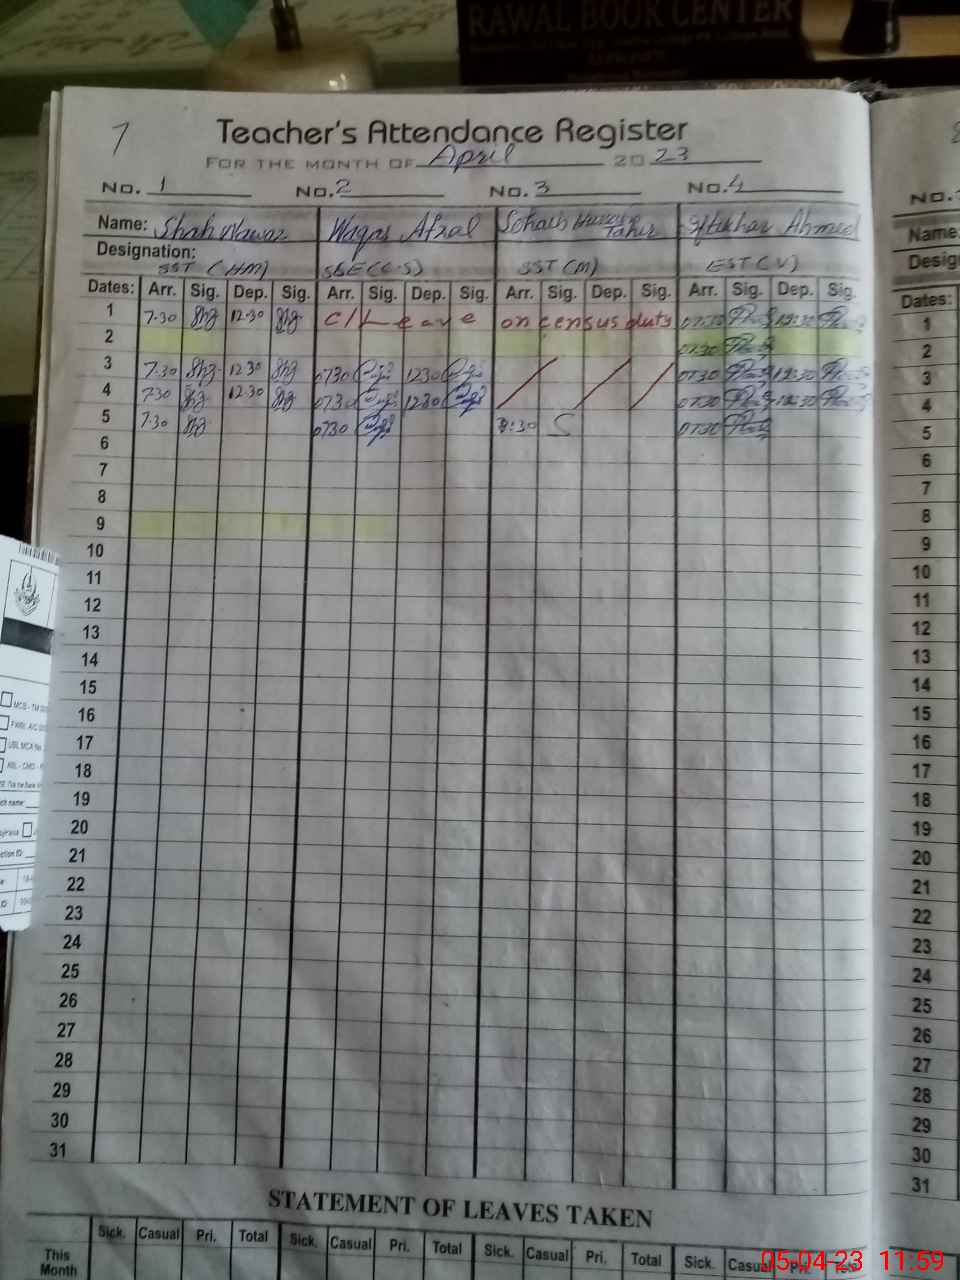 RAWAL BOOK CENTER
7
Teacher's Attendance Register
FOR THE MONTH OF April 2023
No. 1 No. 2 No. 3 No. 4
Name: Shah Nawaz Waqas Afzal Sohaib Hussain Tahir Iftikhar Ahmed
Designation: SST (HM) SSE (C.S) SST (M) EST (V)
Dates: Arr. Sig. Dep. Sig. Arr. Sig. Dep. Sig. Arr. Sig. Dep. Sig. Arr. Sig. Dep. Sig.
1 7.30 12.30 C/Leave on census duty 0730 12:30
2 0730
3 7.30 12 30 0730 1230 0730 12:30
4 730 12.30 0730 1230 0730 12:30
5 7.30 0730 7:30 0730
6
7
8
9
10
11
12
13
14
15
16
17
18
19
20
21
22
23
24
25
26
27
28
29
30
31
STATEMENT OF LEAVES TAKEN
Sick. Casual Pri. Total Sick. Casual Pri. Total Sick. Casual Pri. Total Sick. Casual Pri.
This Month
No.
Name
Desig
Dates:
1
2
3
4
5
6
7
8
9
10
11
12
13
14
15
16
17
18
19
20
21
22
23
24
25
26
27
28
29
30
31
05-04-23 11:59